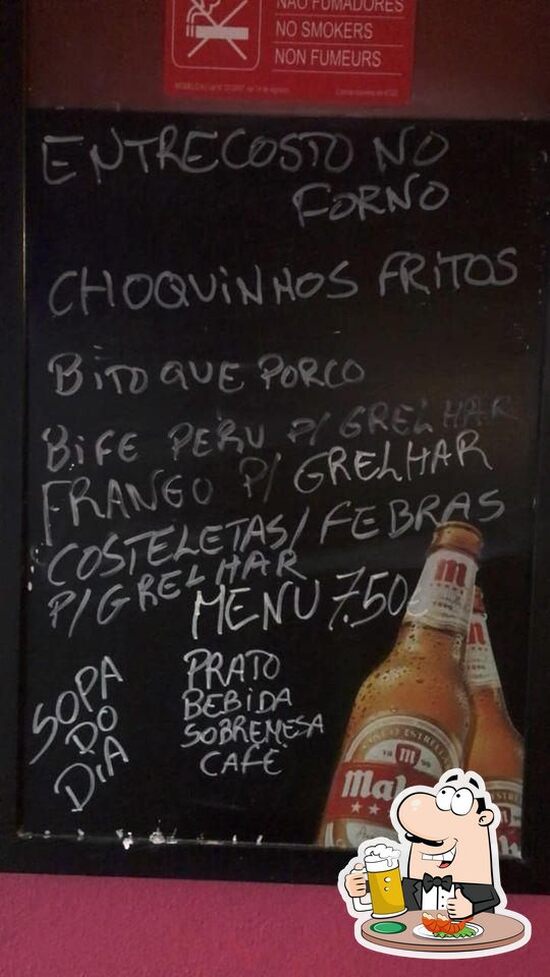 NÃO FUMADORES
NO SMOKERS
NON FUMEURS
ENTRECOSTO NO
FORNO
CHOQUINHOS FRITOS
BITOQUE PORCO
BIFE PERU P/ GRELHAR
FRANGO P/ GRELHAR
COSTELETAS/FEBRAS
P/GRELHAR
MENU 7.50€
SOPA
DO
DIA
PRATO
BEBIDA
SOBREMESA
CAFÉ
m
m
Mah